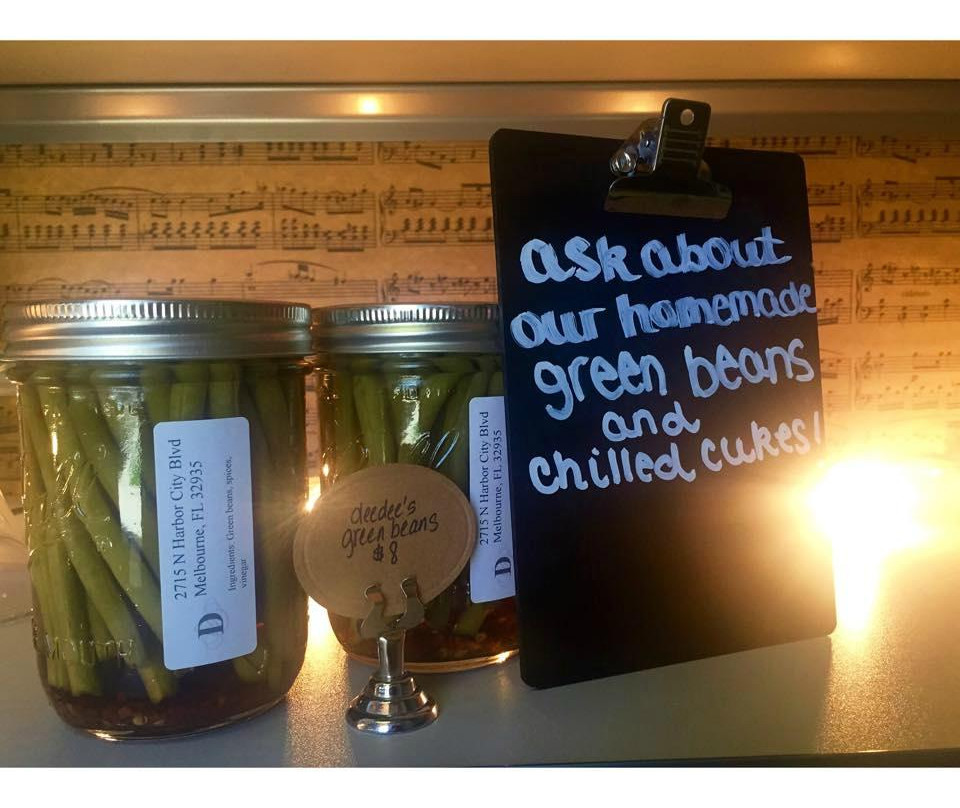 ask about
our homemade
green beans
and
chilled cukes!
deedee's
green beans
$8
2715 N Harbor City Blvd
Melbourne, FL 32935
Ingredients: Green beans, spices,
vinegar
D
2715 N Harbor City Blvd
Melbourne, FL 32935
D
MOUTH